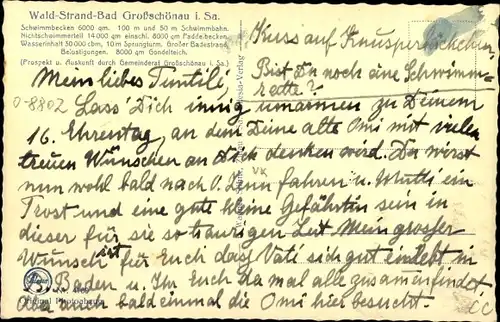 Wald-Strand-Bad Großschönau i. Sa.
Schwimmbecken 6000 qm. 100 m und 50 m Schwimmbahn.
Nichtschwimmerteil 14.000 qm einschl. 8000 qm Paddelbecken.
Wasserinhalt 30.000 cbm, 10 m Sprungturm. Großer Badestrand.
Belustigungen. 8000 qm Gondelteich.
(Prospekt u. Auskunft durch Gemeinderat Großschönau i. Sa.)
Kuss auf Knusperbäckchen.
Bist Du noch eine Schwimm-
ratte?
Mein liebes Tuntili
0-8802
Lass' Dich innig umarmen zu Deinem
16. Ehrentag, an dem Deine alte Omi mit vielen
treuen Wünschen an Dich denken wird. Du wirst
nun wohl bald nach fahren u. Mutti ein
VK
Trost und eine gute kleine Gefährtin sein in
dieser für sie so traurigen Zeit. Mein grosser
Wunsch ist für Euch dass Vati sich gut einlebt in
Baden u. Ihr Euch da mal alle zusammenfindet
aber auch bald einmal die Omi hier besucht.
Original Photographie